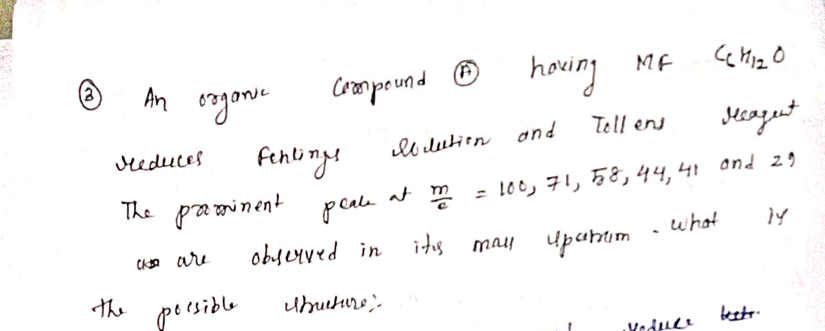 ③ An organic Compound Ⓐ having MF C6H12O
reduces Fehlings solution and Tollens reagent.
The prominent peak at m/e = 100, 71, 58, 44, 41 and 29
are observed in its mass spectrum. what is
the possible structure:-
reduce